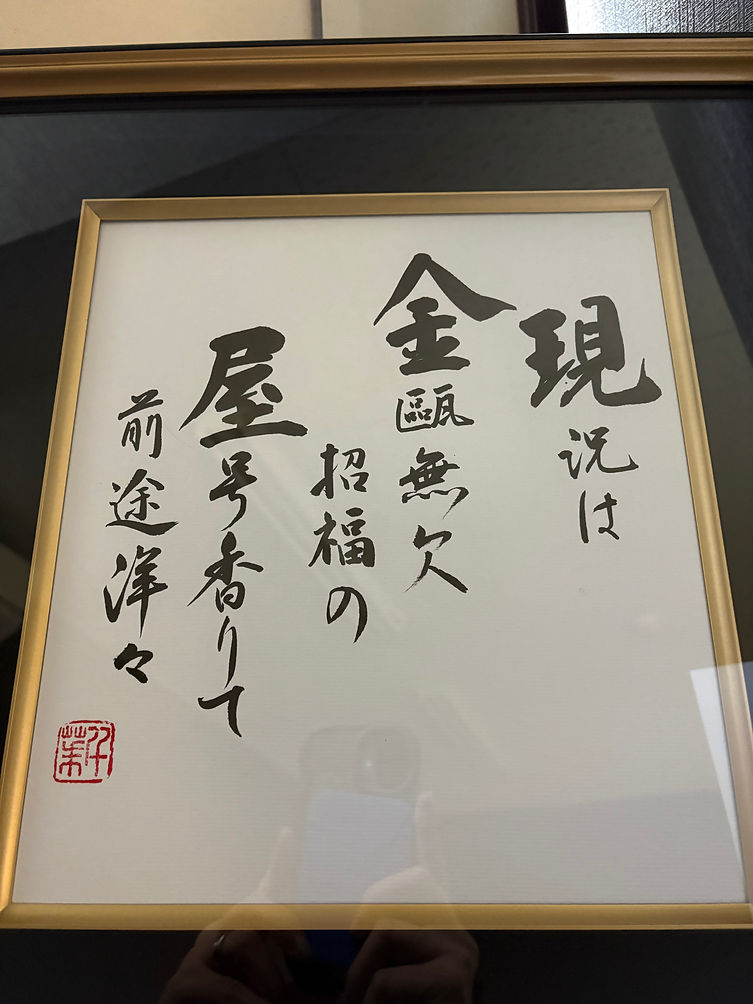 現況は
金甌無欠
招福の
屋号香りて
前途洋々